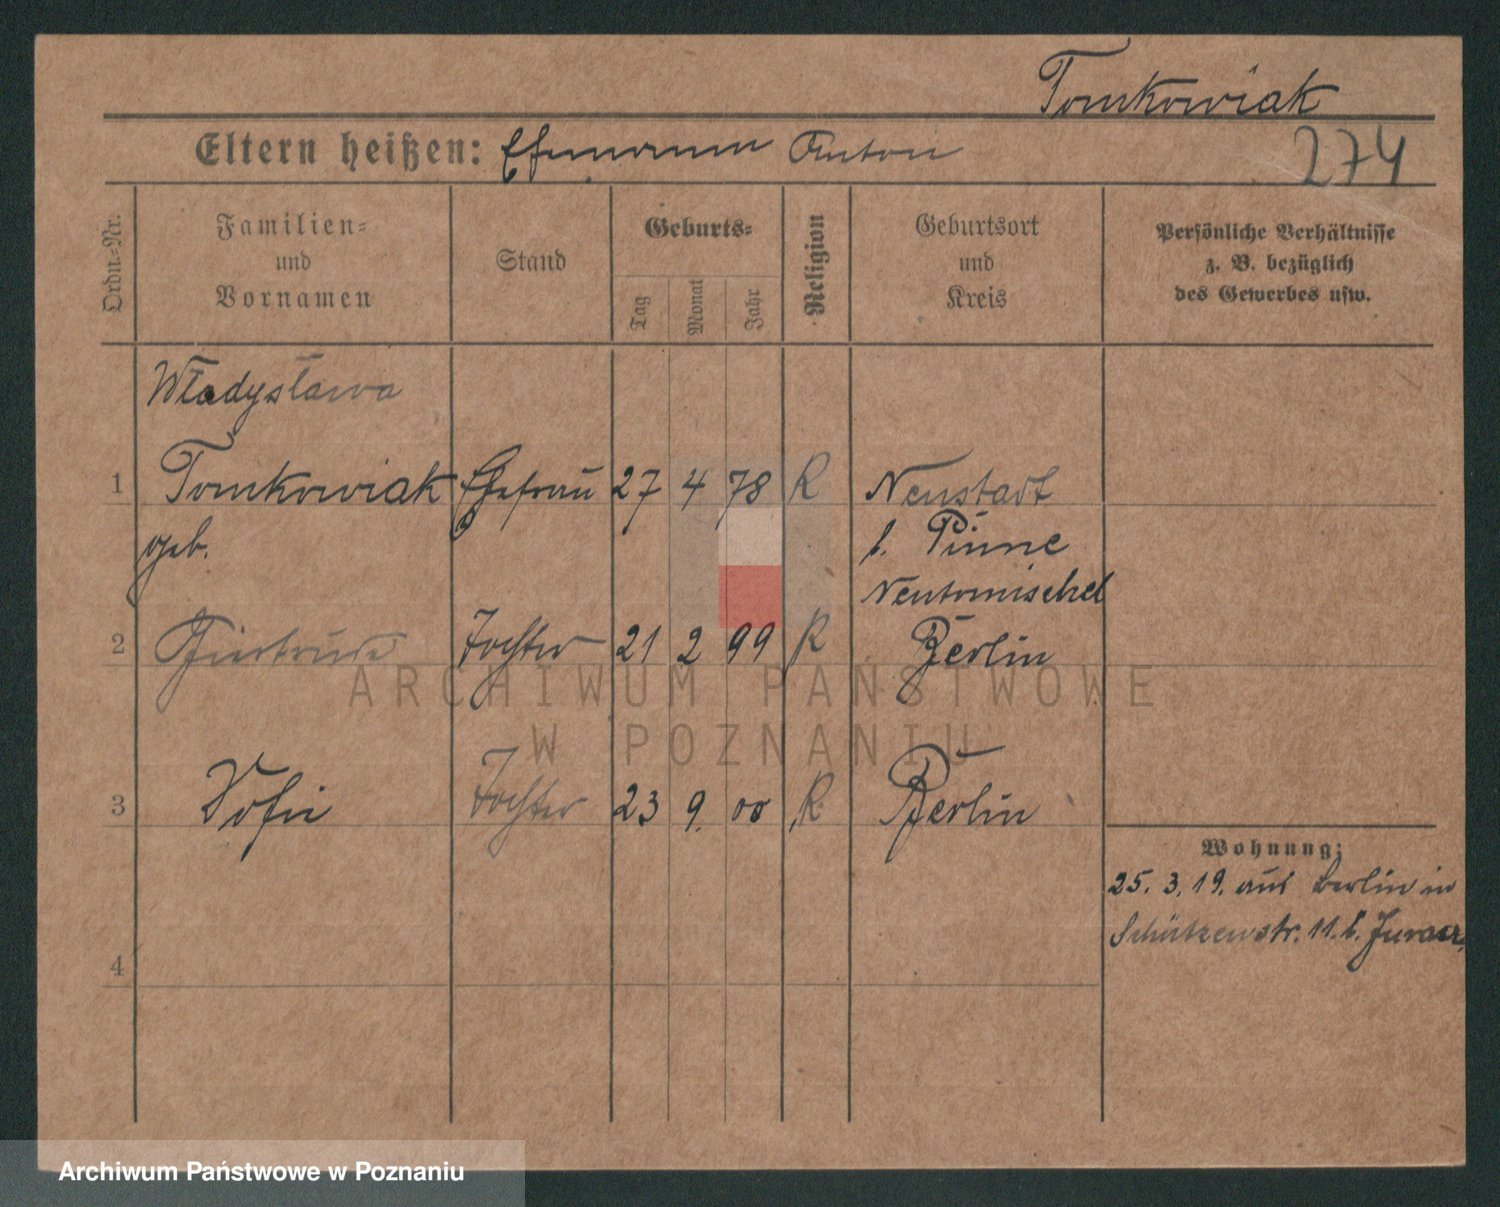 Tomkowiak
Eltern heißen: Ehemann Anton 274
Ordn.-Nr.
Familien-
und
Vornamen
Stand
Geburts-
Tag
Monat
Jahr
Religion
Geburtsort
und
Kreis
Persönliche Verhältnisse
z. B. bezüglich
des Gewerbes usw.
Władysława
1 Tomkowiak Ehefrau 27 4 78 R Neustadt
geb. b. Pinne
Neutomischel
2 Gertrude Tochter 21 2 99 R Berlin
3 Sofie Tochter 23 9. 00 R. Berlin
4
Wohnung:
25. 3. 19. aus Berlin in
Schützenstr. 11. b.
ARCHIWUM PAŃSTWOWE
W POZNANIU
Archiwum Państwowe w Poznaniu